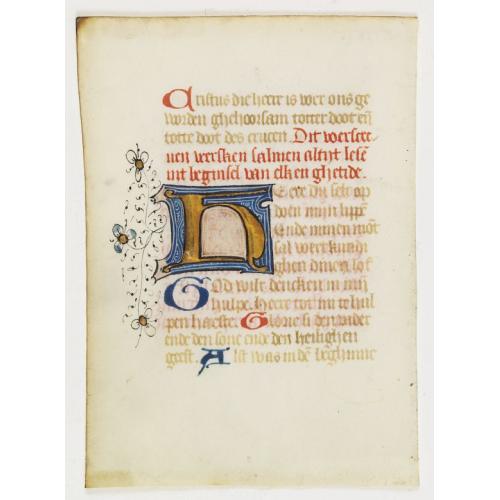 Cristus die heere is voer ons ge
worden ghehoorsam totter doot eñ
totte doot des crucen. Dit voerscre
uen veersken salmen altijt lesē
int beginsel van elken ghetide.
Heere du selt op
doen mijn lippē
Ende minen mōt
sal vercundi
ghen dinen lof
God wilt dencken in mijn
hulpe. Heere tot mi te hul
pen haeste. Glorie si den vader
ende den sone ende den heilighen
geest. Alst was in dē beghinne